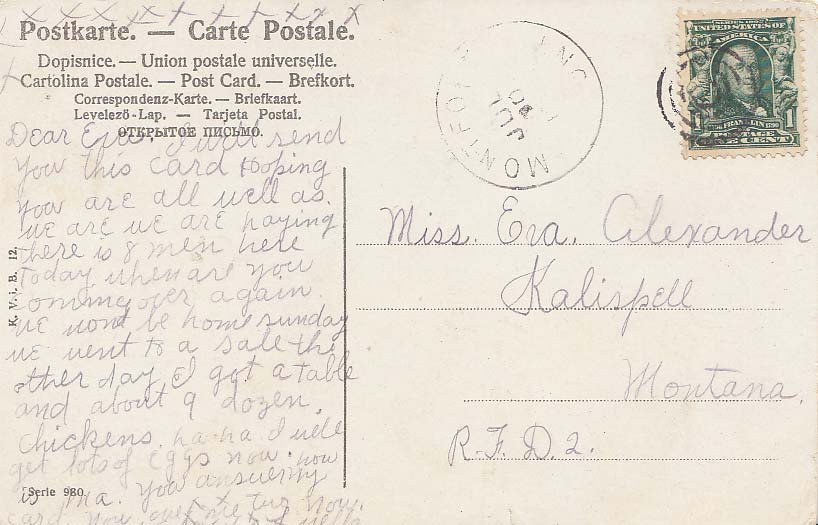 Postkarte. — Carte Postale.
Dopisnice. — Union postale universelle.
Cartolina Postale. — Post Card. — Brefkort.
Correspondenz-Karte. — Briefkaart.
Levelező-Lap. — Tarjeta Postal.
ОТКРЫТОЕ ПИСЬМО.
Dear Eva. I will send
you this card Hoping
you are all well as.
we are we are haying
there is 8 men here
today when are you
coming over again.
we wont be home sunday
we went to a sale the
other day I got a table
and about 9 dozen.
chickens. ha ha I will
get lots of eggs now. how
is Ma. you answer my
card. you owe me
K. V. i. B. 12.
Serie 980.
MONTFOR
JUL
SERIES 1902
UNITED STATES OF
AMERICA
FRANKLIN
POSTAGE
1 ONE CENT 1
Miss. Eva. Alexander
Kalispell
Montana.
R.F.D. 2.